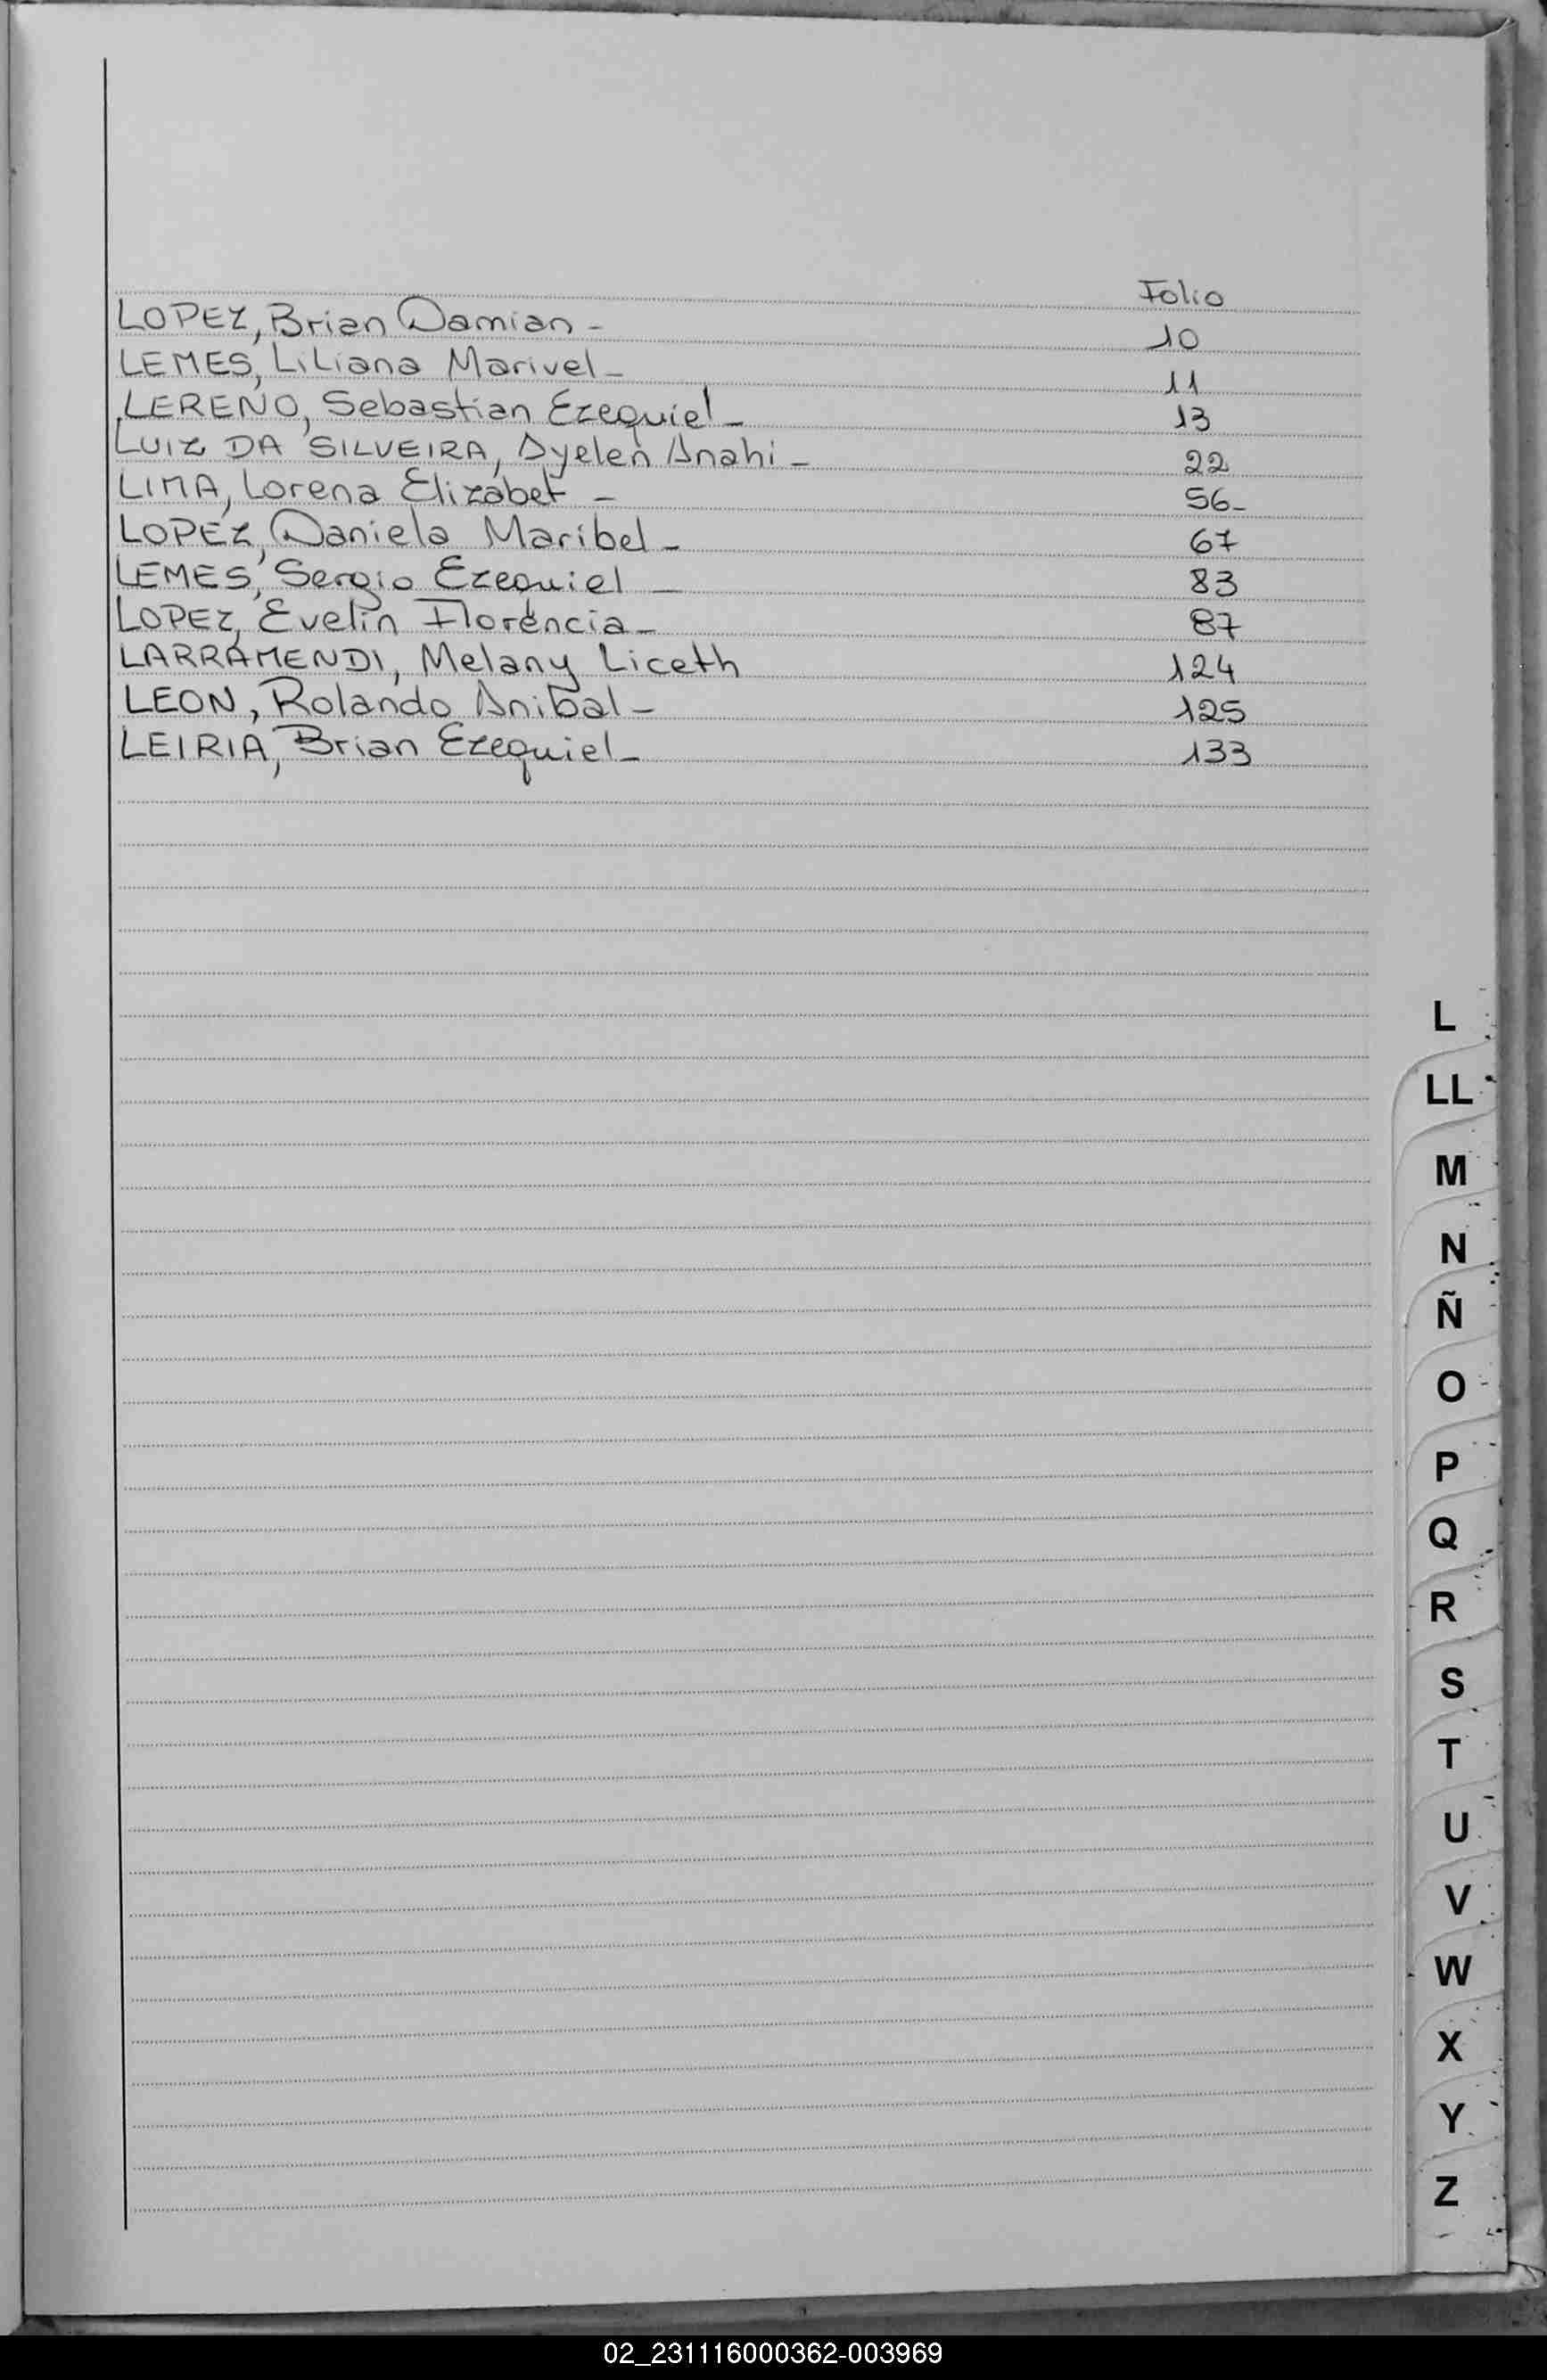 Folio
LOPEZ, Brian Damian - 10
LEMES, Liliana Marivel - 11
LERENO, Sebastian Ezequiel - 13
LUIZ DA SILVEIRA, Ayelen Anahi - 22
LIMA, Lorena Elizabet - 56-
LOPEZ, Daniela Maribel - 67
LEMES, Sergio Ezequiel - 83
LOPEZ, Evelin Florencia - 87
LARRAMENDI, Melany Liceth 124
LEON, Rolando Anibal - 125
LEIRIA, Brian Ezequiel - 133
L
LL
M
N
Ñ
O
P
Q
R
S
T
U
V
W
X
Y
Z
02_231116000362-003969